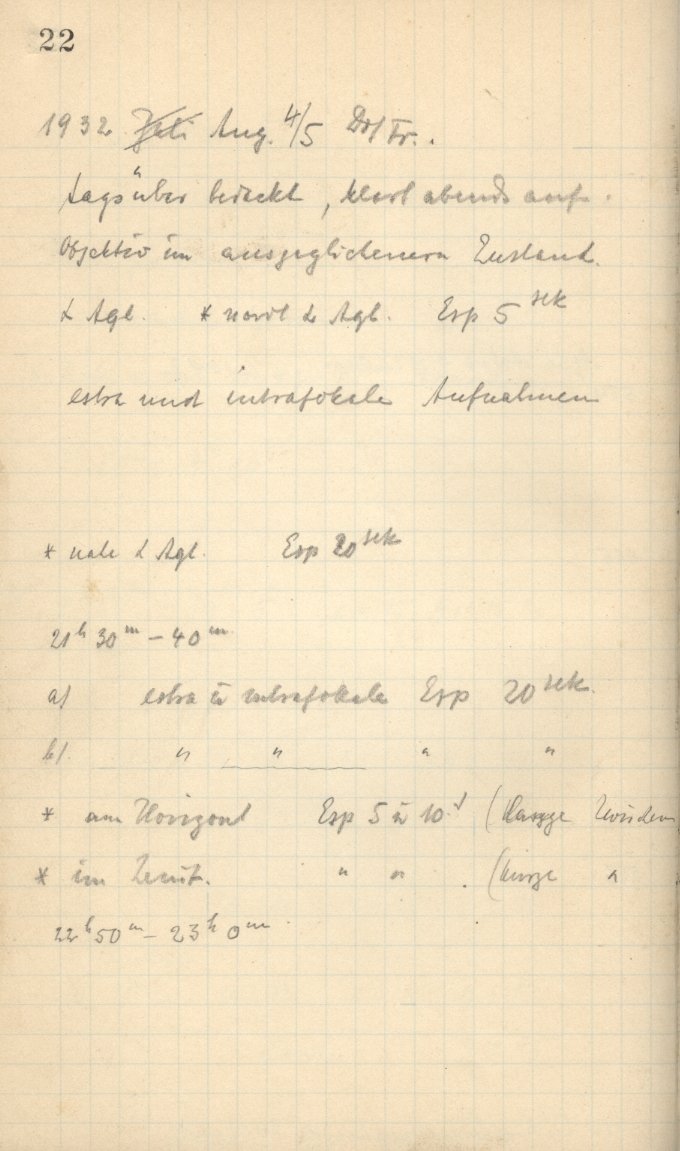 22
1932 Juli Aug. 4/5 Do/Fr.
tagsüber bedeckt, klart abends auf.
Objektiv im ausgeglichenem Zustand.
α Aql. * nördl α Aql. Exp 5 sek
extra und intrafokale Aufnahmen
* nahe α Aql. Exp 20 sek
21h 30m – 40m
a) extra u intrafokale Exp 20 sek.
b) " " " "
* am Horizont Exp 5 u 10s (
* im Zenit. " " (kurze "
22h 50m – 23h 0m